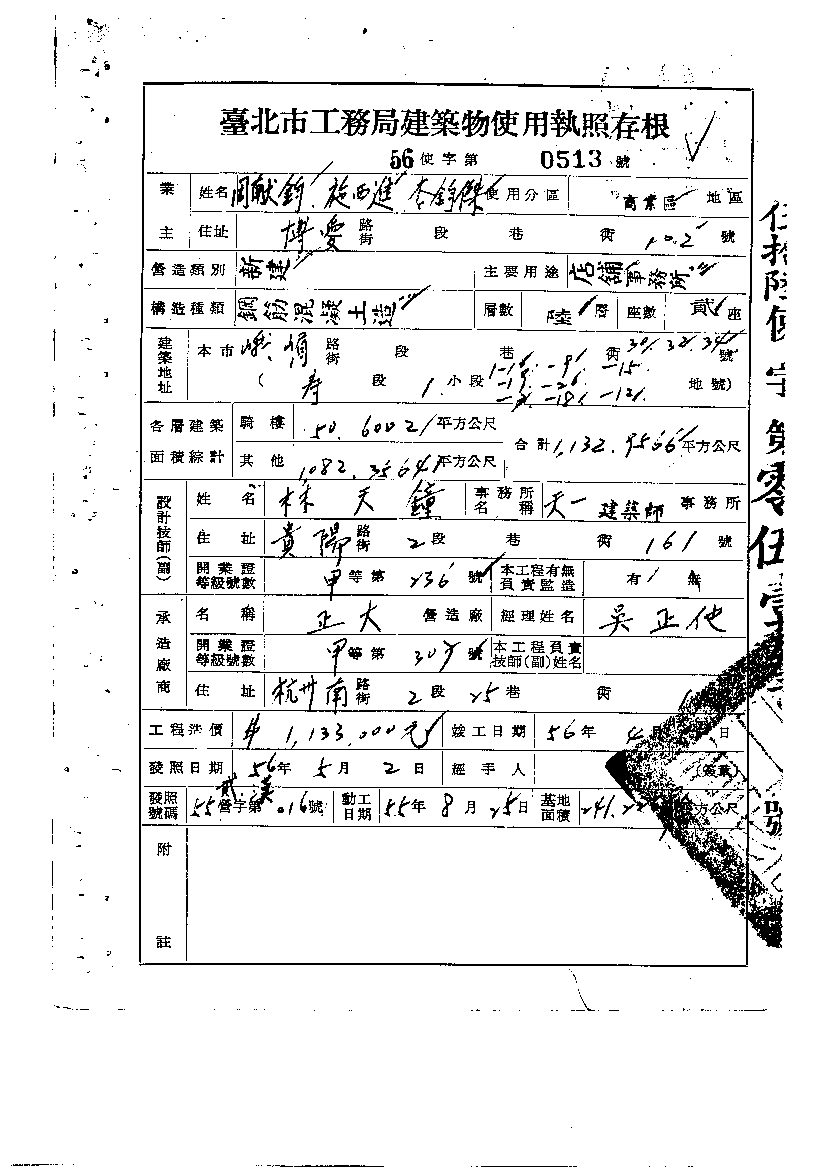 臺北市工務局建築物使用執照存根
56使字第 0513 號
業主 姓名 施西進 使用分區 商業區 地區
住址 博愛 路街 段 巷 衖 102 號
營造類別 新建 主要用途 店鋪事務所
構造種類 鋼筋混凝土造 層數 陸層 座數 貳座
建築地址 本市 路街 段 巷 衖 30. 32. 34 號
( 段 1 小段 地號)
各層建築面積綜計 騎樓 50.6002 平方公尺 合計 1,132.9566 平方公尺
其他 1082.3564 平方公尺
設計技師(副) 姓名 林天鐘 事務所名稱 天一建築師 事務所
住址 貴陽 路街 2段 巷 衖 161 號
開業證等級號數 甲等第 236 號 本工程有無負責監造 有 無
承造廠商 名稱 正大 營造廠 經理姓名 吳正
開業證等級號數 甲等第 號 本工程負責技師(副)姓名
住址 杭州南 路街 2段 25巷 衖
工程造價 $1,133,000元 竣工日期 56年 4月 日
發照日期 56年 5月 2日 經手人 (簽章)
發照號碼 55 營字第 016號 動工日期 55年 8月 25日 基地面積 241. 方公尺
附註
伍拾陸使字第零伍壹 號